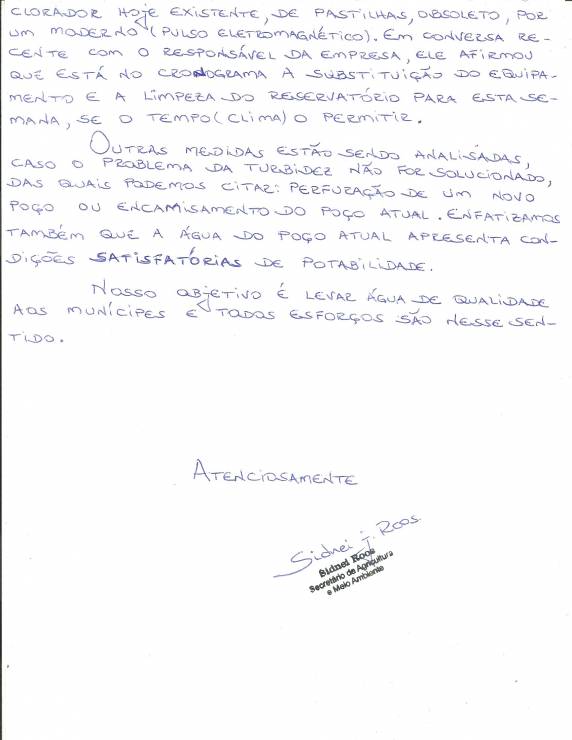 CLORADOR HOJE EXISTENTE, DE PASTILHAS, OBSOLETO, POR
UM MODERNO (PULSO ELETROMAGNÉTICO). EM CONVERSA RE-
CENTE COM O RESPONSÁVEL DA EMPRESA, ELE AFIRMOU
QUE ESTÁ NO CRONOGRAMA A SUBSTITUIÇÃO DO EQUIPA-
MENTO E A LIMPEZA DO RESERVATÓRIO PARA ESTA SE-
MANA, SE O TEMPO (CLIMA) O PERMITIR.
OUTRAS MEDIDAS ESTÃO SENDO ANALISADAS,
CASO O PROBLEMA DA TURBIDEZ NÃO FOR SOLUCIONADO,
DAS QUAIS PODEMOS CITAR: PERFURAÇÃO DE UM NOVO
POÇO OU ENCAMISAMENTO DO POÇO ATUAL. ENFATIZAMOS
TAMBÉM QUE A ÁGUA DO POÇO ATUAL APRESENTA CON-
DIÇÕES SATISFATÓRIAS DE POTABILIDADE.
NOSSO OBJETIVO É LEVAR ÁGUA DE QUALIDADE
AOS MUNÍCIPES E TODOS ESFORÇOS SÃO NESSE SEN-
TIDO.
ATENCIOSAMENTE
Sidnei J. Roos
Sidnei Roos
Secretário de Agricultura
e Meio Ambiente